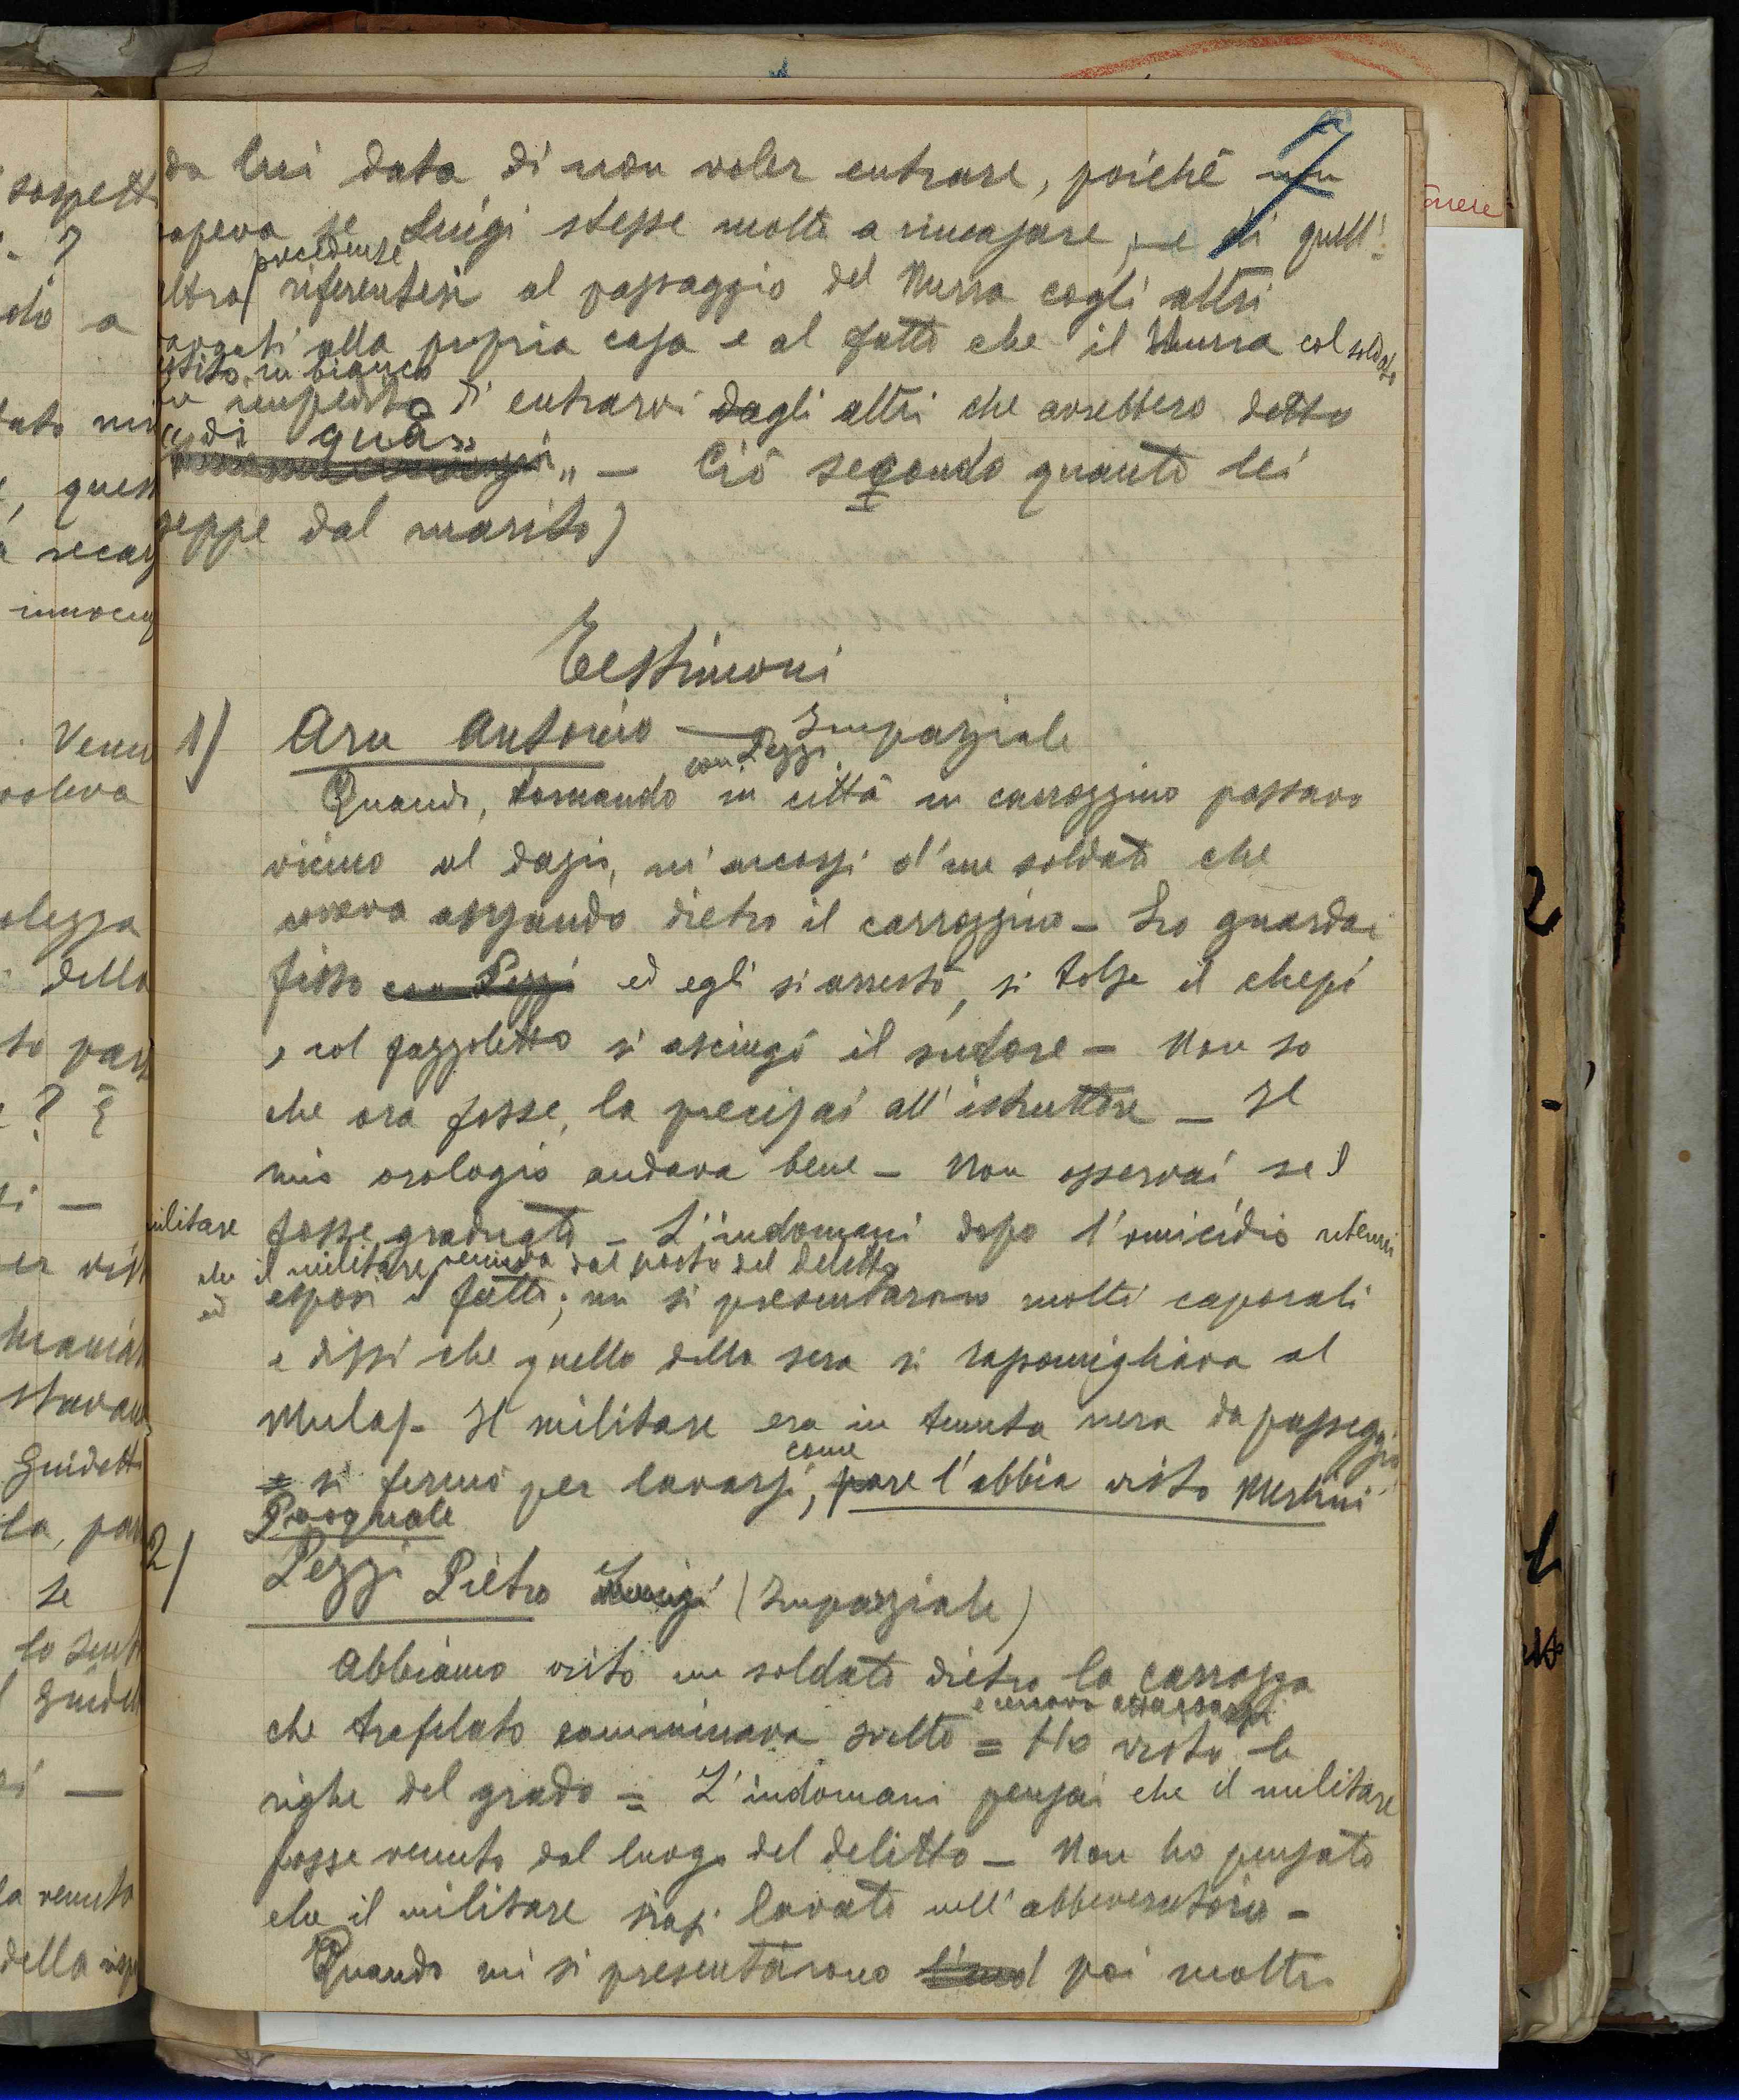 da lui data di non voler entrare, poichè non
sapeva se Luigi stesse molto a rincasare, e di quell'
altra precedente riferentesi al passaggio del Murra cogli altri
alla propria casa e al fatto che il Murra col soldato
vestito in bianco
impedito di entrarvi dagli altri che avrebbero detto
"di quà" — Ciò secondo quanto lei
seppe dal marito)
7
Testimoni
1) Aru Antonio — Imparziale
Quando, tornando con Pezzi in città in carrozzino passavo
vicino al dazio, m'accorsi d'un soldato che
correva ansando dietro il carrozzino — Lo guardai
fisso con Pezzi ed egli si arrestò, si tolse il chepì
e col fazzoletto si asciugò il sudore — Non so
che ora fosse, la precisai all'istruttore — Il
mio orologio andava bene — Non osservai se l
militare fosse graduato — L'indomani dopo l'omicidio ritenni
che il militare veniva dal posto del delitto
ed esposi i fatti; mi si presentarono molti caporali
e dissi che quello della sera si rassomigliava al
Mulas — Il militare era in tenuta nera da passeggio
e si fermò per lavarsi, come pare l'abbia visto Mestini
Pasquale
2) Pezzi Pietro Luigi (Imparziale)
Abbiamo visto un soldato dietro la carrozza
che trafelato camminava svelto = Ho visto le
righe del grado = L'indomani pensai che il militare
fosse venuto dal luogo del delitto — Non ho pensato
che il militare siasi lavato nell'abbeveratoio —
Quando mi si presentarono poi molti